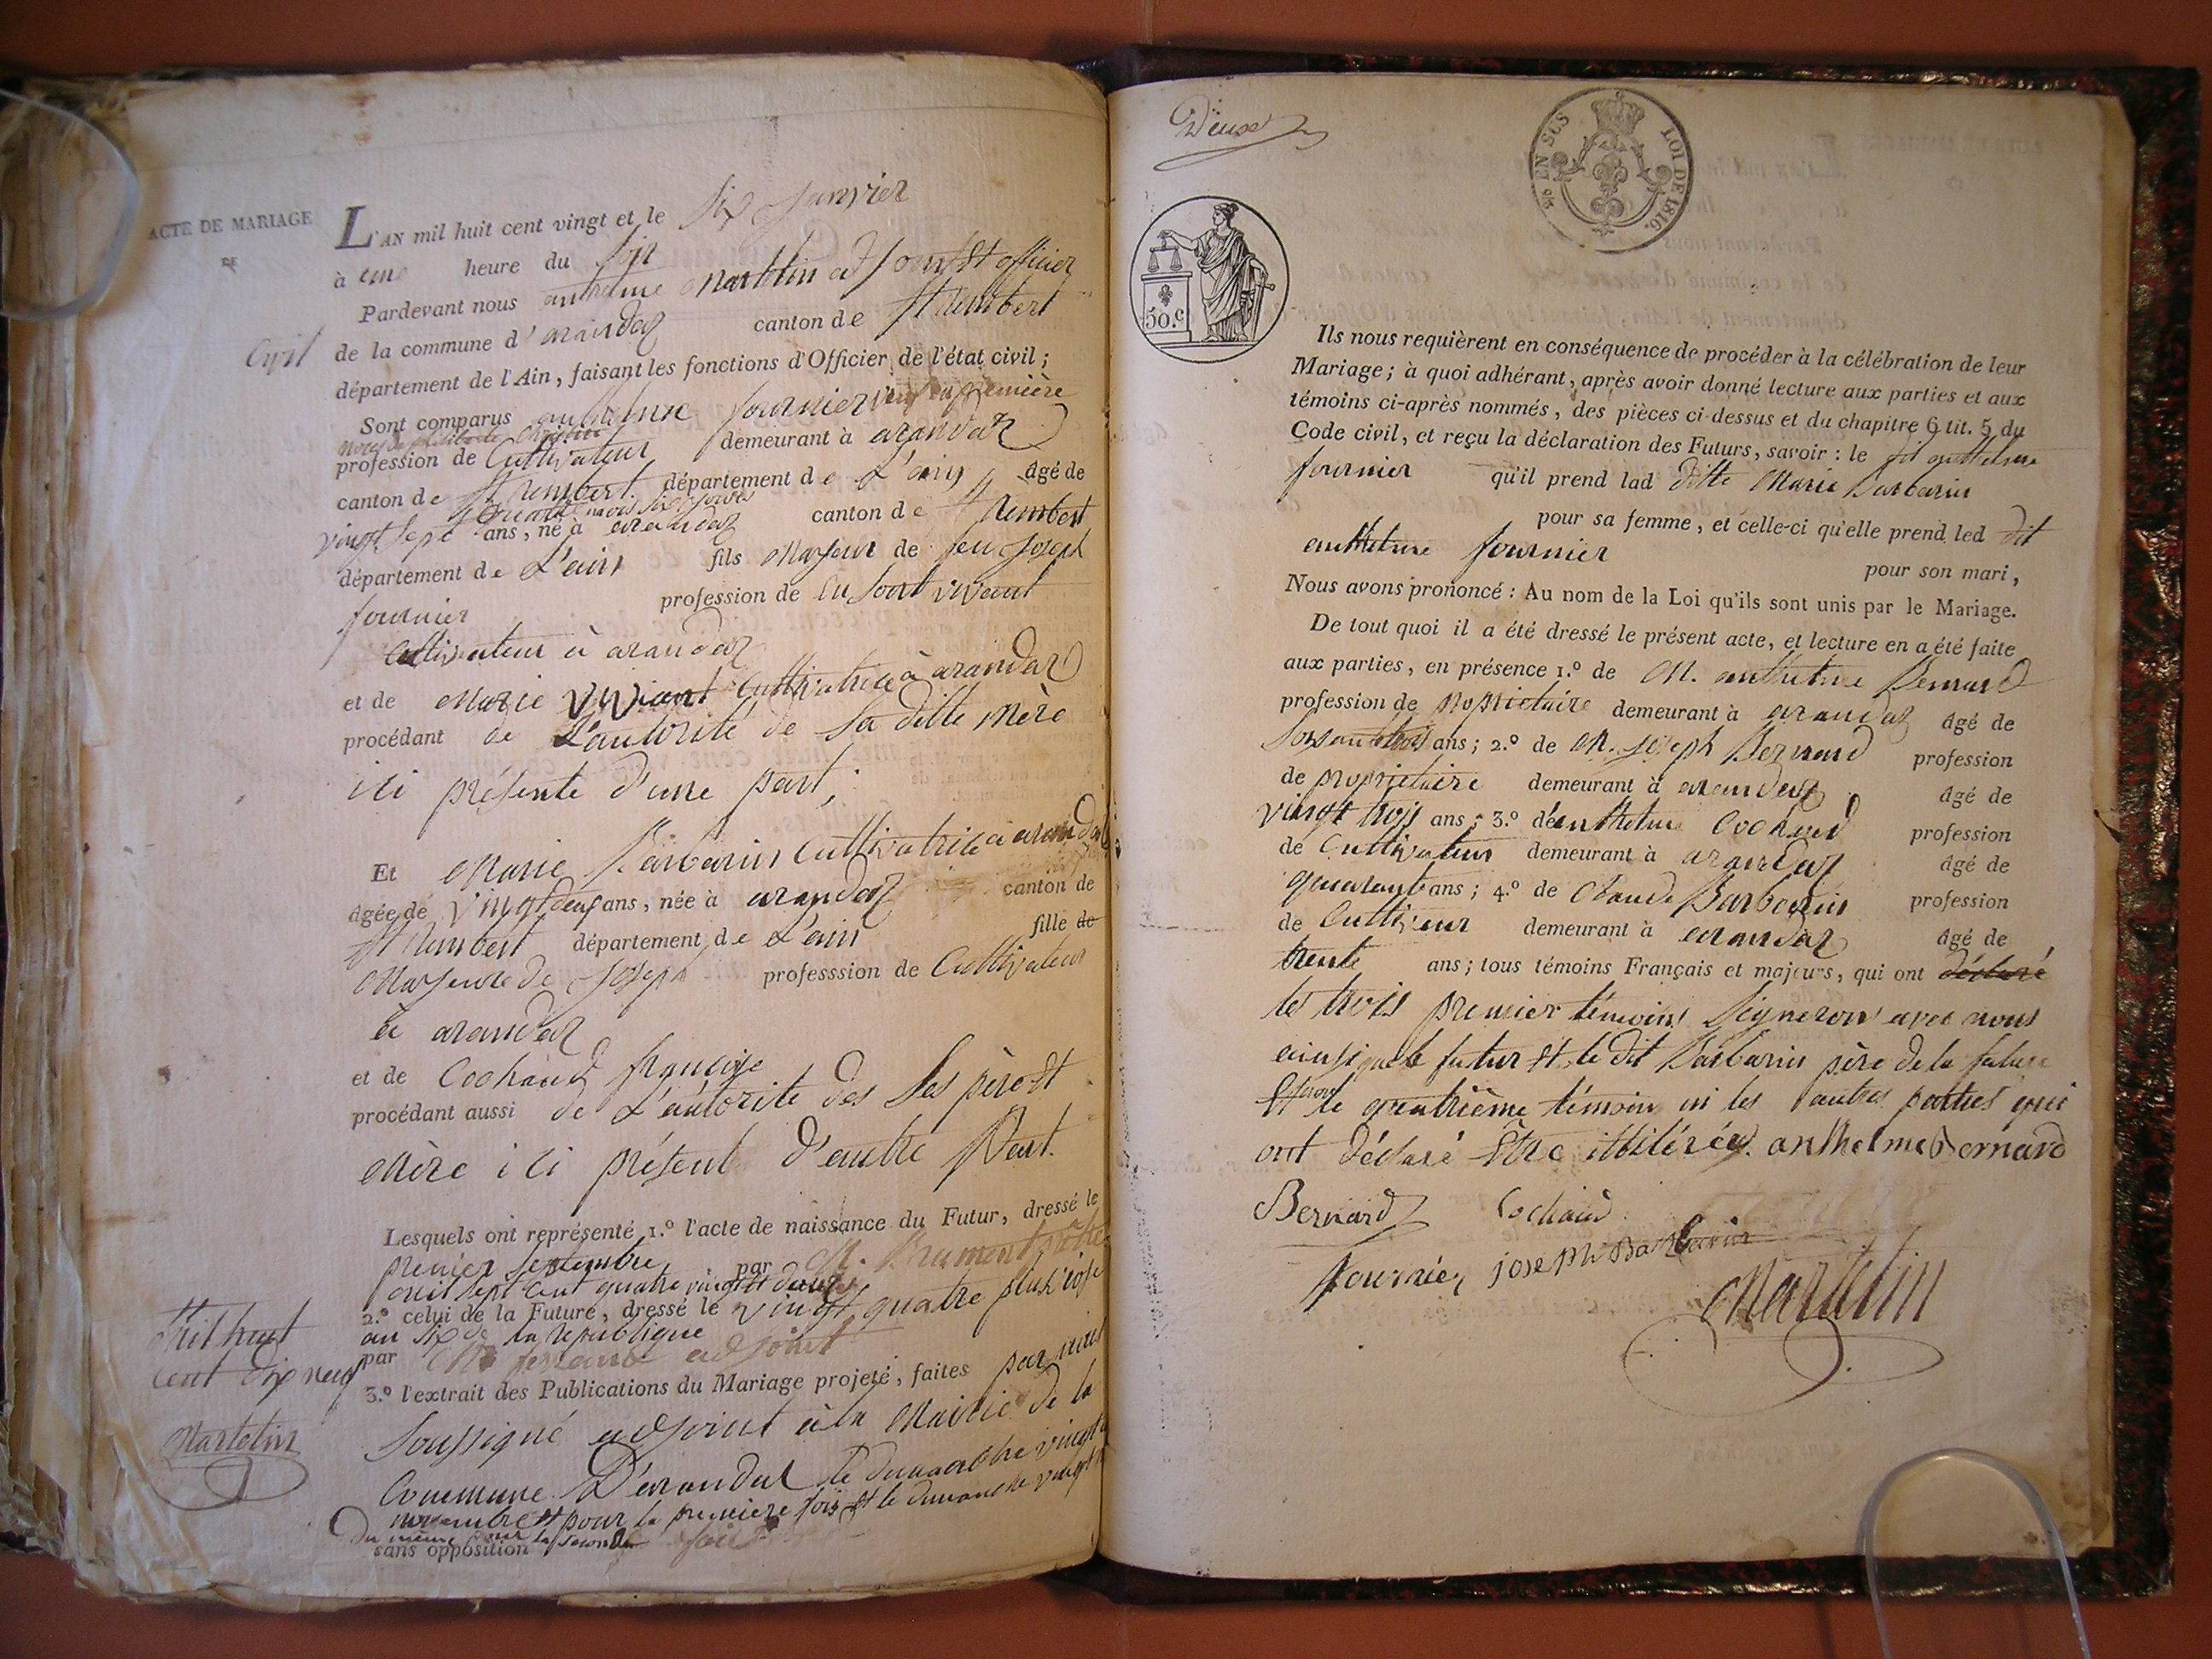 ACTE DE MARIAGE
DE
L'AN mil huit cent vingt et le six Janvier
à une heure du soir
Pardevant nous anthelme Martelin adjoint et officier
de la commune d'arandaz canton de St Rembert
Civil
département de l'Ain, faisant les fonctions d'Officier de l'état civil;
Sont comparus anthelme fournier première
profession de Cultivateur demeurant à arandaz
canton de St Rembert département de L'ain âgé de
vingt sept ans, né à arandaz canton de St Rembert
département de L'ain fils Majeur de feu Joseph
fournier profession de lu vivant
Cultivateur à arandaz
et de Marie Cultivatrice à arandaz
procédant de L'autorité de sa ditte mère
ici présente d'une part;
Et Marie Barbarin Cultivatrice à arandaz
âgée de vingt deux ans, née à arandaz canton de
St Rembert département de L'ain fille de
Majeure de Joseph professsion de Cultivateur
à arandaz
et de Cochaud françoise
procédant aussi de L'autorité des ses père et
Mère ici présent d'autre Part.
Lesquels ont représenté 1.º l'acte de naissance du Futur, dressé le
premier septembre par M.
mil sept cent quatre vingt et
2.º celui de la Future, dressé le vingt quatre pluviose
an six de la république
par adjoint
3.º l'extrait des Publications du Mariage projeté, faites par nous
mil huit
cent dix neuf
Martelin
Soussigné adjoint à la Mairie de la
Commune D'arandaz le dimanche vingt
novembre pour la première fois et le dimanche vingt
Du même pour la seconde fois
sans opposition
Deux
EN SUS LOI DE 1816.
50.c
Ils nous requièrent en conséquence de procéder à la célébration de leur
Mariage; à quoi adhérant, après avoir donné lecture aux parties et aux
témoins ci-après nommés, des pièces ci-dessus et du chapitre 6 tit. 5 du
Code civil, et reçu la déclaration des Futurs, savoir : le dit anthelme
fournier qu'il prend lad ditte Marie Barbarin
pour sa femme, et celle-ci qu'elle prend led dit
anthelme fournier
pour son mari,
Nous avons prononcé : Au nom de la Loi qu'ils sont unis par le Mariage.
De tout quoi il a été dressé le présent acte, et lecture en a été faite
aux parties, en présence 1.º de M. anthelme Bernard
profession de propriétaire demeurant à arandaz âgé de
ans; 2.º de M. Joseph Bernard profession
de propriétaire demeurant à arandaz âgé de
vingt trois ans; 3.º de anthelme Cochaud profession
de Cultivateur demeurant à arandaz âgé de
quarante ans; 4.º de Claude Barbarin profession
de Cultiveur demeurant à arandaz âgé de
trente ans; tous témoins Français et majeurs, qui ont déclaré
les trois premier témoins Signeron avec nous
ainsi que le futur et le dit Barbarin père de la future
et non le quatrième témoin ni les autres parties qui
ont déclaré être illitérés. anthelme Bernard
Bernard Cochaud
fournier joseph Barbarin
Martelin